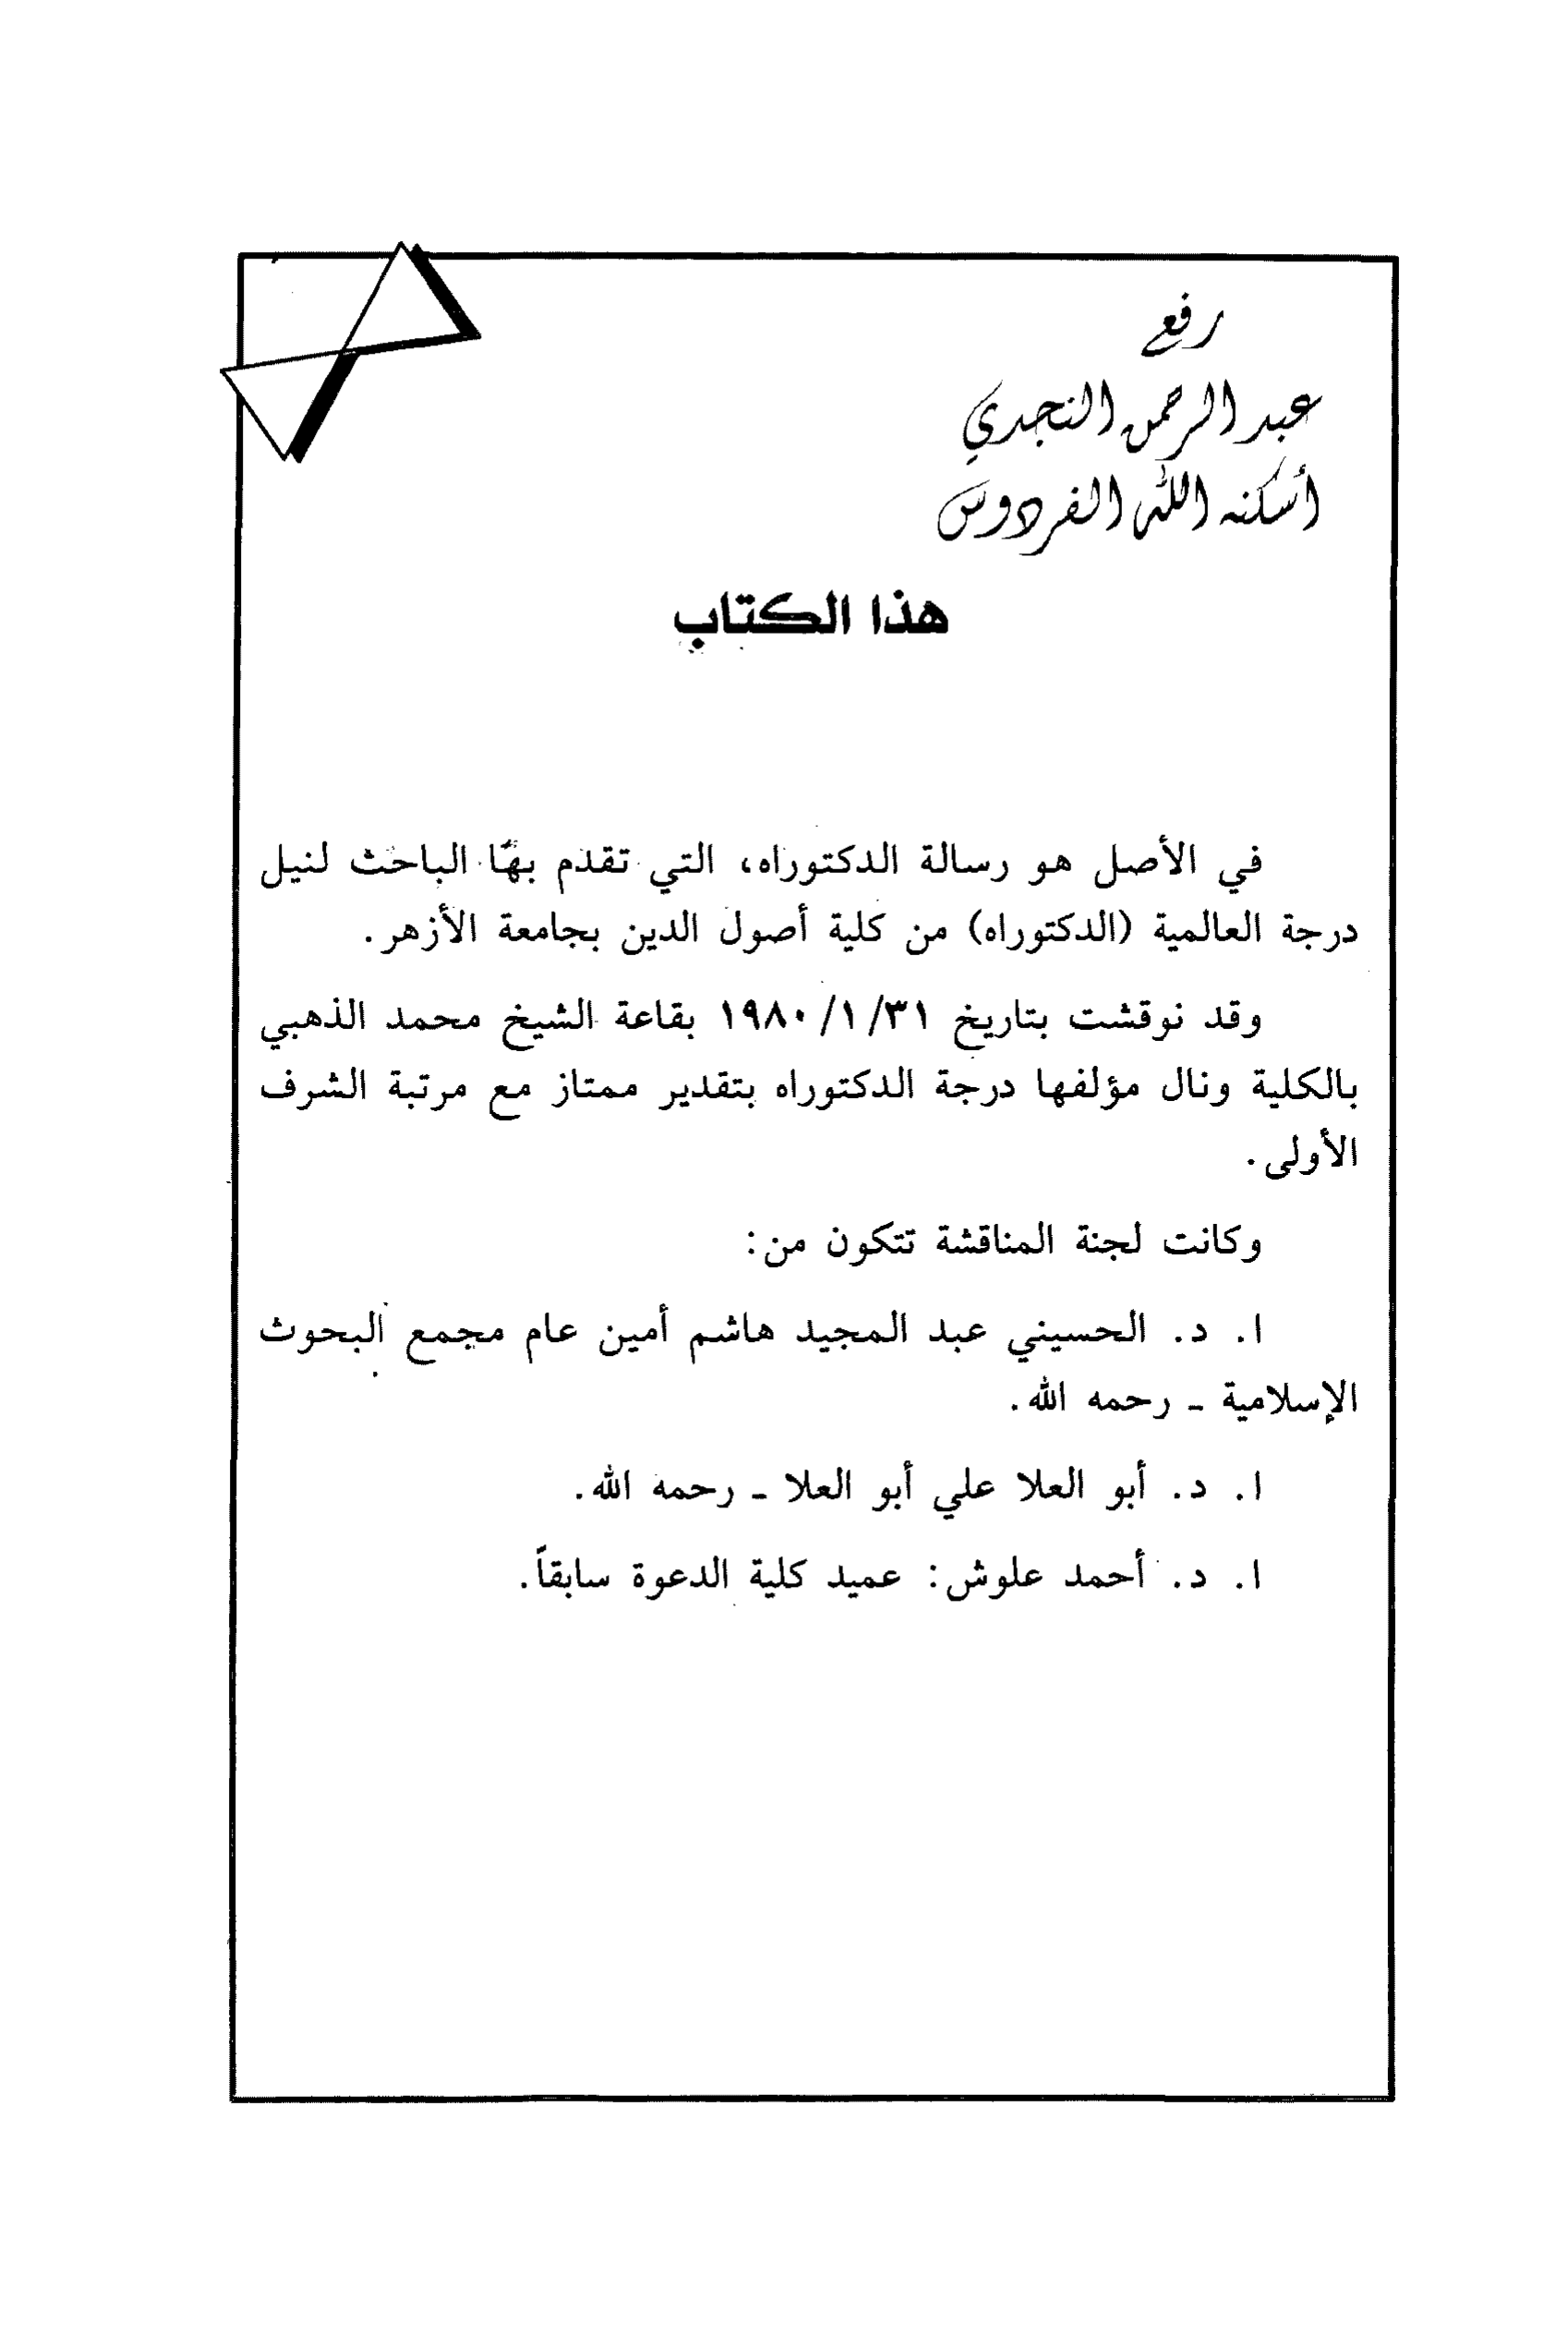 رفع
عبد الرحمن النجدي
أسكنه الله الفردوس
هذا الكتاب
في الأصل هو رسالة الدكتوراه، التي تقدم بها الباحث لنيل
درجة العالمية (الدكتوراه) من كلية أصول الدين بجامعة الأزهر.
وقد نوقشت بتاريخ ٣١/ ١/ ١٩٨٠ بقاعة الشيخ محمد الذهبي
بالكلية ونال مؤلفها درجة الدكتوراه بتقدير ممتاز مع مرتبة الشرف
الأولى.
وكانت لجنة المناقشة تتكون من:
ا. د. الحسيني عبد المجيد هاشم أمين عام مجمع البحوث
الإسلامية - رحمه الله.
ا. د. أبو العلا علي أبو العلا - رحمه الله.
ا. د. أحمد علوش: عميد كلية الدعوة سابقاً.